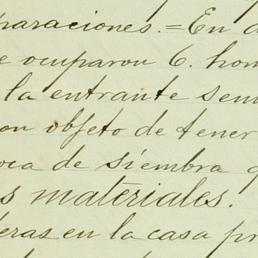 paraciones.=En
e ocuparon 6. hom
la entrante sem
on objeto de tener
oca de siembra
s materiales.
eras en la casa pr